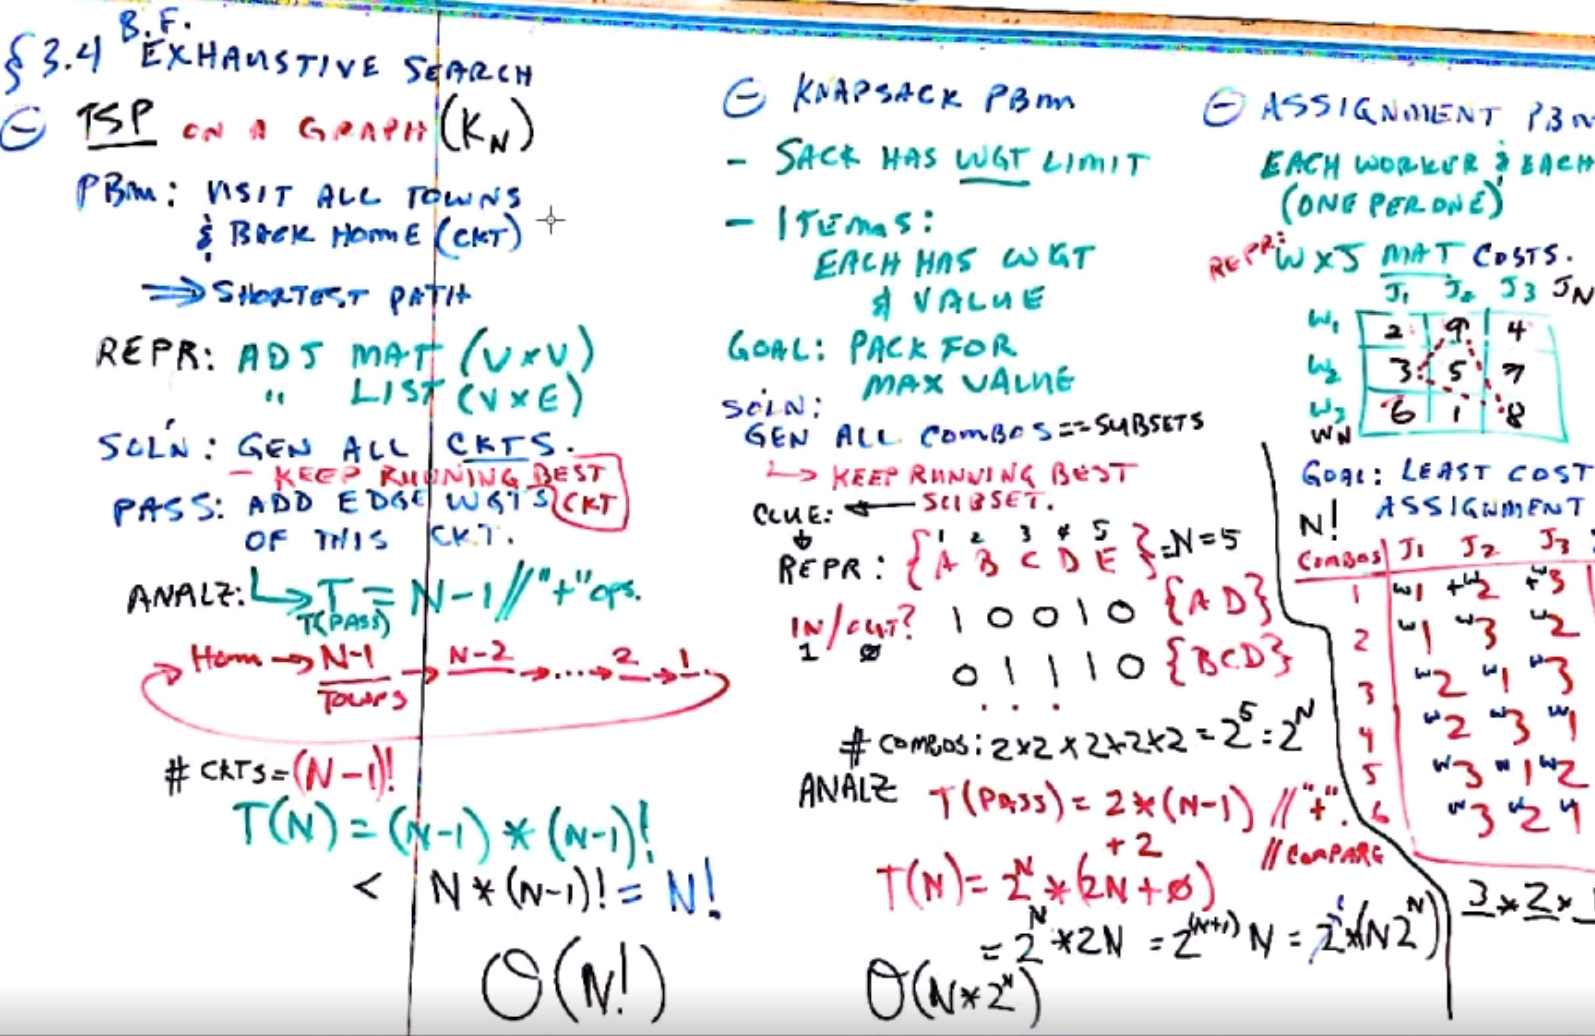 § 3.4 B.F. EXHAUSTIVE SEARCH
⊖ TSP ON A GRAPH (KN)
PBm: VISIT ALL TOWNS
& BACK HOME (CKT)
⇒ SHORTEST PATH
REPR: ADJ MAT (V×V)
" LIST (V×E)
SOL'N: GEN ALL CKTS.
- KEEP RUNNING BEST
CKT
PASS: ADD EDGE WGTS
OF THIS CKT.
ANALZ: ↳ T = N-1 // "+" ops.
T(PASS)
→ Hom → N-1 → N-2 → .... → 2 → 1
TOWNS
# CKTS = (N-1)!
T(N) = (N-1) * (N-1)!
< N * (N-1)! = N!
O(N!)
⊖ KNAPSACK PBm
- SACK HAS WGT LIMIT
- ITEMS:
EACH HAS WGT
& VALUE
GOAL: PACK FOR
MAX VALUE
SOLN:
GEN ALL COMBOS == SUBSETS
↳ KEEP RUNNING BEST
SUBSET.
CLUE: ←
↓
1 2 3 4 5
REPR: {A B C D E} = N = 5
IN/OUT? 1 0 0 1 0 {AD}
1 0
0 1 1 1 0 {BCD}
. . .
# COMBOS: 2×2×2×2×2 = 2^5 = 2^N
ANALZ T(PASS) = 2*(N-1) // "+".
+ 2 // COMPARE
T(N) = 2^N * (2N + 0)
= 2^N * 2N = 2^(N+1) N = 2^1 * (N 2^N)
O(N*2^N)
⊖ ASSIGNMENT PBm
EACH WORKER & EACH
(ONE PER ONE)
REPR: W×J MAT COSTS.
J1 J2 J3 JN
W1 2 9 4
W2 3 5 7
W3 6 1 8
WN
GOAL: LEAST COST
ASSIGNMENT
N!
COMBOS J1 J2 J3
1 W1 +W2 +W3
2 W1 W3 W2
3 W2 W1 W3
4 W2 W3 W1
5 W3 W1 W2
6 W3 W2 W1
3 * 2 *